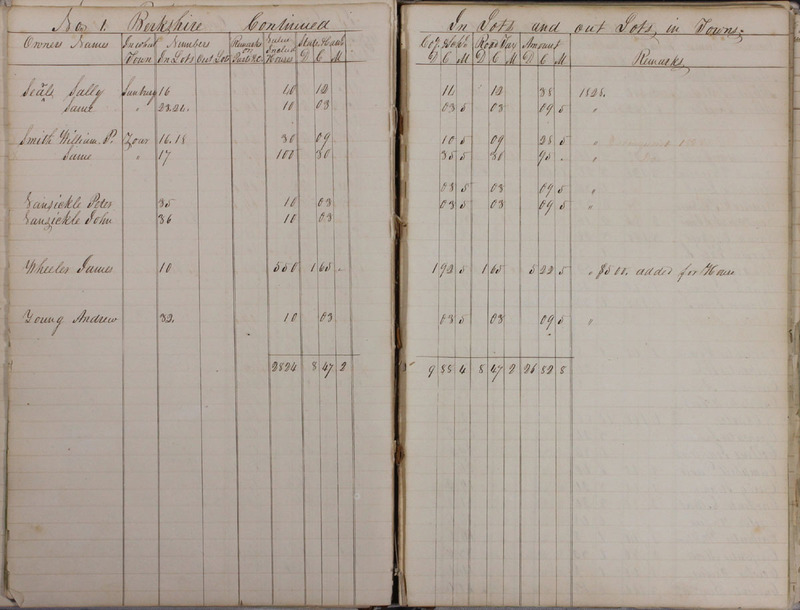 No 1. Berkshire Continued In Lots and out Lots in Towns
Owners Names In what Town Numbers In Lots Out Lots Remarks or Part &c Value Includ Houses State & Canl D C M Co. & Sch. D C M Road Tax D C M Amount D C M Remarks
Seals Sally Sunbury 16 40 12 14 12 38 1828.
Same " 23.24. 10 03 03 5 03 09 5 "
Smith William P. Zoar 16.18 30 09 10 5 09 28 5 "
Same " 17 100 30 35 5 30 95 - "
03 5 03 09 5 "
Vansickle Peter 35 10 03 03 5 03 09 5 "
Vansickle John 36 10 03
Wheeler James 10 550 1 65 - 1 92 5 1 65 5 22 5 " $500. added for House
Young Andrew 32. 10 03 03 5 03 09 5 "
2824 8 47 2 9 88 4 8 47 2 26 82 8